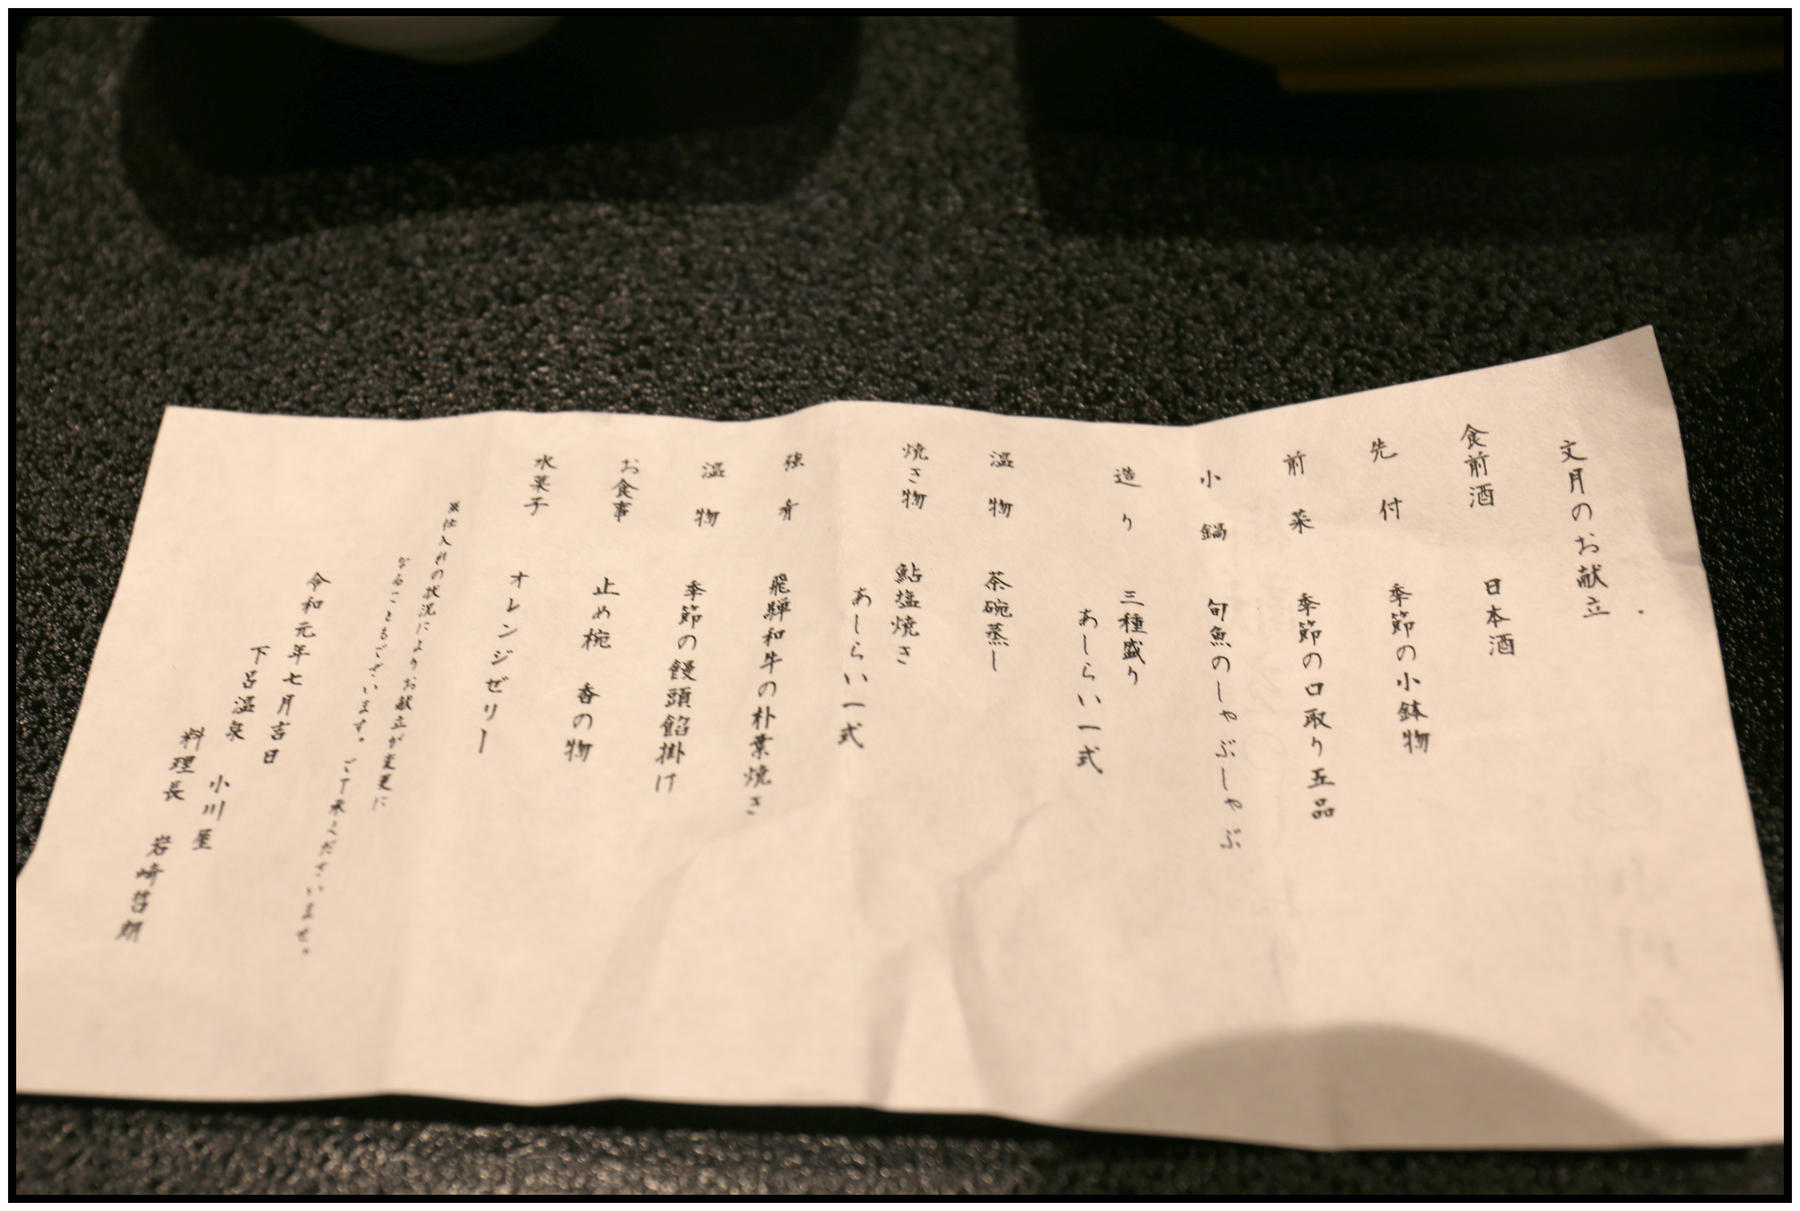 文月のお献立
食前酒 日本酒
先付 季節の小鉢物
前菜 季節の口取り五品
小鍋 旬魚のしゃぶしゃぶ
造り 三種盛り
あしらい一式
温物 茶碗蒸し
焼き物 鮎塩焼き
あしらい一式
強肴 飛騨和牛の朴葉焼き
温物 季節の饅頭餡掛け
お食事 止め椀 香の物
水菓子 オレンジゼリー
※仕入れの状況によりお献立が変更に
なることもございます。ご了承くださいませ。
令和元年七月吉日
下呂温泉 小川屋
料理長 岩崎